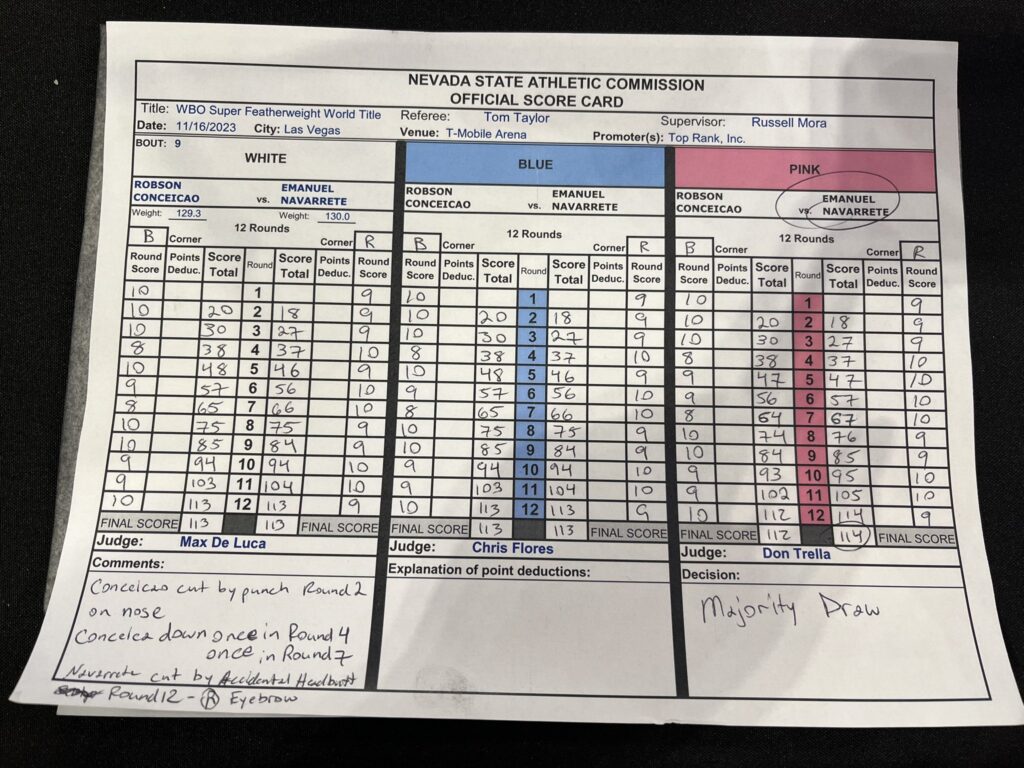 NEVADA STATE ATHLETIC COMMISSION
OFFICIAL SCORE CARD
Title: WBO Super Featherweight World Title Referee: Tom Taylor Supervisor: Russell Mora
Date: 11/16/2023 City: Las Vegas Venue: T-Mobile Arena Promoter(s): Top Rank, Inc.
BOUT: 9
WHITE BLUE PINK
ROBSON CONCEICAO vs. EMANUEL NAVARRETE ROBSON CONCEICAO vs. EMANUEL NAVARRETE ROBSON CONCEICAO vs. EMANUEL NAVARRETE
Weight: 129.3 Weight: 130.0
12 Rounds 12 Rounds 12 Rounds
B Corner Corner R B Corner Corner R B Corner Corner R
Round Score Points Deduc. Score Total Round Score Total Points Deduc. Round Score Round Score Points Deduc. Score Total Round Score Total Points Deduc. Round Score Round Score Points Deduc. Score Total Round Score Total Points Deduc. Round Score
10 1 9 10 1 9 10 1 9
10 20 2 18 9 10 20 2 18 9 10 20 2 18 9
10 30 3 27 9 10 30 3 27 9 10 30 3 27 9
8 38 4 37 10 8 38 4 37 10 8 38 4 37 10
10 48 5 46 9 10 48 5 46 9 9 47 5 47 10
9 57 6 56 10 9 57 6 56 10 9 56 6 57 10
8 65 7 66 10 8 65 7 66 10 8 64 7 67 10
10 75 8 75 9 10 75 8 75 9 10 74 8 76 9
10 85 9 84 9 10 85 9 84 9 10 84 9 85 9
9 94 10 94 10 9 94 10 94 10 9 93 10 95 10
9 103 11 104 10 9 103 11 104 10 9 102 11 105 10
10 113 12 113 9 10 113 12 113 9 10 112 12 114 9
FINAL SCORE 113 113 FINAL SCORE FINAL SCORE 113 113 FINAL SCORE FINAL SCORE 112 114 FINAL SCORE
Judge: Max De Luca Judge: Chris Flores Judge: Don Trella
Comments: Explanation of point deductions: Decision:
Conceicao cut by punch Round 2
on nose
Conceica down once in Round 4
once in Round 7
Navarrete cut by Accidental Headbutt
Round 12 - R Eyebrow
Majority Draw